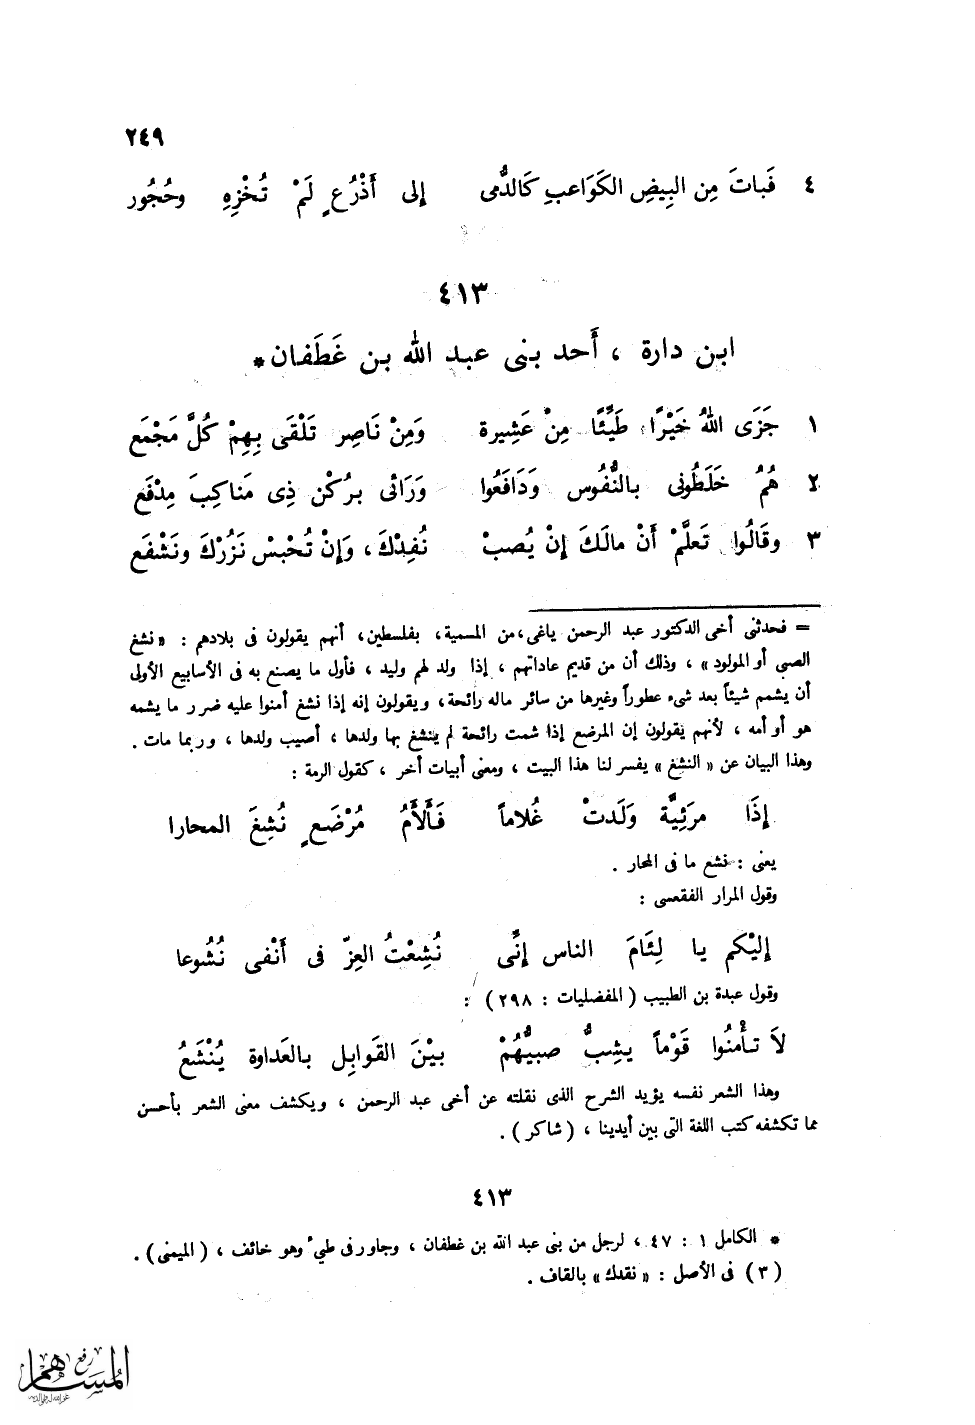 ٢٤٩
٤ فَباتَ مِن البِيضِ الكَوَاعبِ كَالدُّمى إلى أَذْرُعٍ لَمْ تُخْزِهِ وحُجُور
٤١٣
ابن دارة ، أَحد بنى عبد الله بن غَطَفان *
١ جَزَى اللهُ خَيْرًا طَيِّئًا مِنْ عَشِيرة وَمِنْ ناصِر تَلْقَى بِهِمْ كُلَّ مَجْمَع
٢ هُمُ خَلَطُونى بالنُّفُوس وَدَافَعُوا وَرَائى برُكْن ذِى مَناكِبَ مِدْفَع
٣ وقَالُوا تَعلَّمْ أَنْ مالَكَ إنْ يُصبْ نُفِدْكَ ، وَإنْ تُحْبَسْ نَزُرْكَ ونَشْفَع
= فحدثنى أخى الدكتور عبد الرحمن ياغى ، من المسمية ، بفلسطين ، أنهم يقولون فى بلادهم : « نشغ
الصبى أو المولود » ، وذلك أن من قديم عاداتهم ، إذا ولد لهم وليد ، فأول ما يصنع به فى الأسابيع الأولى
أن يشمم شيئاً بعد شىء عطوراً وغيرها من سائر ماله رائحة ، ويقولون إنه إذا نشغ أمنوا عليه ضرر ما يشمه
هو أو أمه ، لأنهم يقولون إن المرضع إذا شمت رائحة لم ينشغ بها ولدها ، أصيب ولدها ، وربما مات .
وهذا البيان عن « النشغ » يفسر لنا هذا البيت ، ومعنى أبيات أخر ، كقول الرمة :
إِذَا مرَئِيَّة وَلَدتْ غُلاماً فَأَلأَمُ مُرْضَعٍ نُشِغَ المحارا
يعنى : نشع ما فى المحار .
وقول المرار الفقعسى :
إلَيْكم يا لِئَامَ الناس إنِّى نُشِعْتُ العِزّ فى أَنْفى نُشُوعا
وقول عبدة بن الطبيب ( المفضليات : ٢٩٨ ) :
لاَ تأْمنُوا قَوْماً يشِبُّ صبيُّهُمْ بيْنَ القَوابِل بالعَداوة يُنْشَعُ
وهذا الشعر نفسه يؤيد الشرح الذى نقلته عن أخى عبد الرحمن ، ويكشف معنى الشعر بأحسن
مما تكشفه كتب اللغة التى بين أيدينا ، ( شاكر ) .
٤١٣
* الكامل ١ : ٤٧ ، لرجل من بنى عبد الله بن غطفان ، وجاور فى طيء وهو خائف ، ( الميمنى ) .
( ٣ ) فى الأصل : « نقدك » بالقاف .
المساهم
رفع